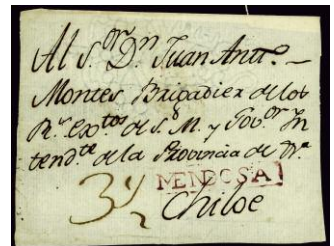 Al S.ᵒʳ D.ⁿ Juan Antt.º
Montes Brigadier de los
R.ˢ Exᵗᵒˢ de S. M. y Gov.ᵒʳ In
tend.ᵗᵉ de la Provincia de
MENDOSA
3½
Chiloe